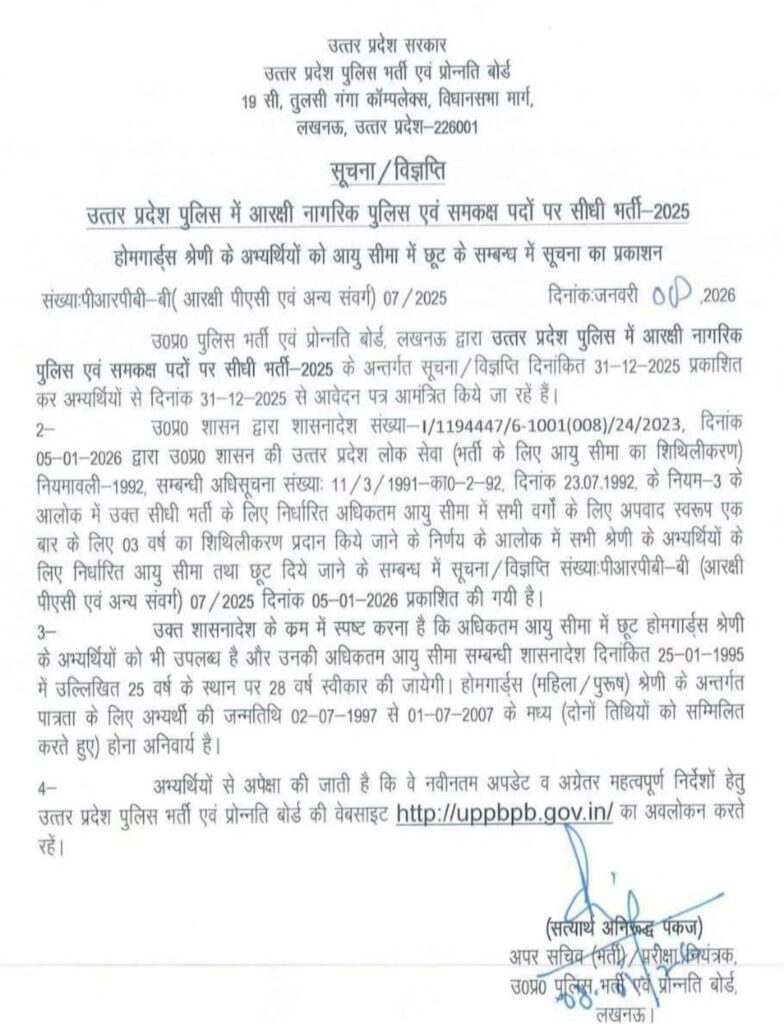 उत्तर प्रदेश सरकार
उत्तर प्रदेश पुलिस भर्ती एवं प्रोन्नति बोर्ड
19 सी, तुलसी गंगा कॉम्पलेक्स, विधानसभा मार्ग,
लखनऊ, उत्तर प्रदेश–226001
सूचना/विज्ञप्ति
उत्तर प्रदेश पुलिस में आरक्षी नागरिक पुलिस एवं समकक्ष पदों पर सीधी भर्ती–2025
होमगार्ड्स श्रेणी के अभ्यर्थियों को आयु सीमा में छूट के सम्बन्ध में सूचना का प्रकाशन
संख्याःपीआरपीबी–बी( आरक्षी पीएसी एवं अन्य संवर्ग) 07/2025 दिनांकःजनवरी 08 ,2026
उ0प्र0 पुलिस भर्ती एवं प्रोन्नति बोर्ड, लखनऊ द्वारा उत्तर प्रदेश पुलिस में आरक्षी नागरिक
पुलिस एवं समकक्ष पदों पर सीधी भर्ती–2025 के अन्तर्गत सूचना/विज्ञप्ति दिनांकित 31–12–2025 प्रकाशित
कर अभ्यर्थियों से दिनांक 31–12–2025 से आवेदन पत्र आमंत्रित किये जा रहें हैं।
2– उ0प्र0 शासन द्वारा शासनादेश संख्या–I/1194447/6-1001(008)/24/2023, दिनांक
05–01–2026 द्वारा उ0प्र0 शासन की उत्तर प्रदेश लोक सेवा (भर्ती के लिए आयु सीमा का शिथिलीकरण)
नियमावली–1992, सम्बन्धी अधिसूचना संख्याः 11/3/1991–का0–2–92, दिनांक 23.07.1992, के नियम–3 के
आलोक में उक्त सीधी भर्ती के लिए निर्धारित अधिकतम आयु सीमा में सभी वर्गो के लिए अपवाद स्वरूप एक
बार के लिए 03 वर्ष का शिथिलीकरण प्रदान किये जाने के निर्णय के आलोक में सभी श्रेणी के अभ्यर्थियों के
लिए निर्धारित आयु सीमा तथा छूट दिये जाने के सम्बन्ध में सूचना/विज्ञप्ति संख्याःपीआरपीबी–बी (आरक्षी
पीएसी एवं अन्य संवर्ग) 07/2025 दिनांक 05–01–2026 प्रकाशित की गयी है।
3– उक्त शासनादेश के क्रम में स्पष्ट करना है कि अधिकतम आयु सीमा में छूट होमगार्ड्स श्रेणी
के अभ्यर्थियों को भी उपलब्ध है और उनकी अधिकतम आयु सीमा सम्बन्धी शासनादेश दिनांकित 25–01–1995
में उल्लिखित 25 वर्ष के स्थान पर 28 वर्ष स्वीकार की जायेगी। होमगार्ड्स (महिला/पुरूष) श्रेणी के अन्तर्गत
पात्रता के लिए अभ्यर्थी की जन्मतिथि 02–07–1997 से 01–07–2007 के मध्य (दोनों तिथियों को सम्मिलित
करते हुए) होना अनिवार्य है।
4– अभ्यर्थियों से अपेक्षा की जाती है कि वे नवीनतम अपडेट व अग्रेतर महत्वपूर्ण निर्देशों हेतु
उत्तर प्रदेश पुलिस भर्ती एवं प्रोन्नति बोर्ड की वेबसाइट http://uppbpb.gov.in/ का अवलोकन करते
रहें।
(सत्यार्थ अनिरूद्ध पंकज)
अपर सचिव (भर्ती)/परीक्षा नियंत्रक,
उ0प्र0 पुलिस भर्ती एवं प्रोन्नति बोर्ड,
लखनऊ।